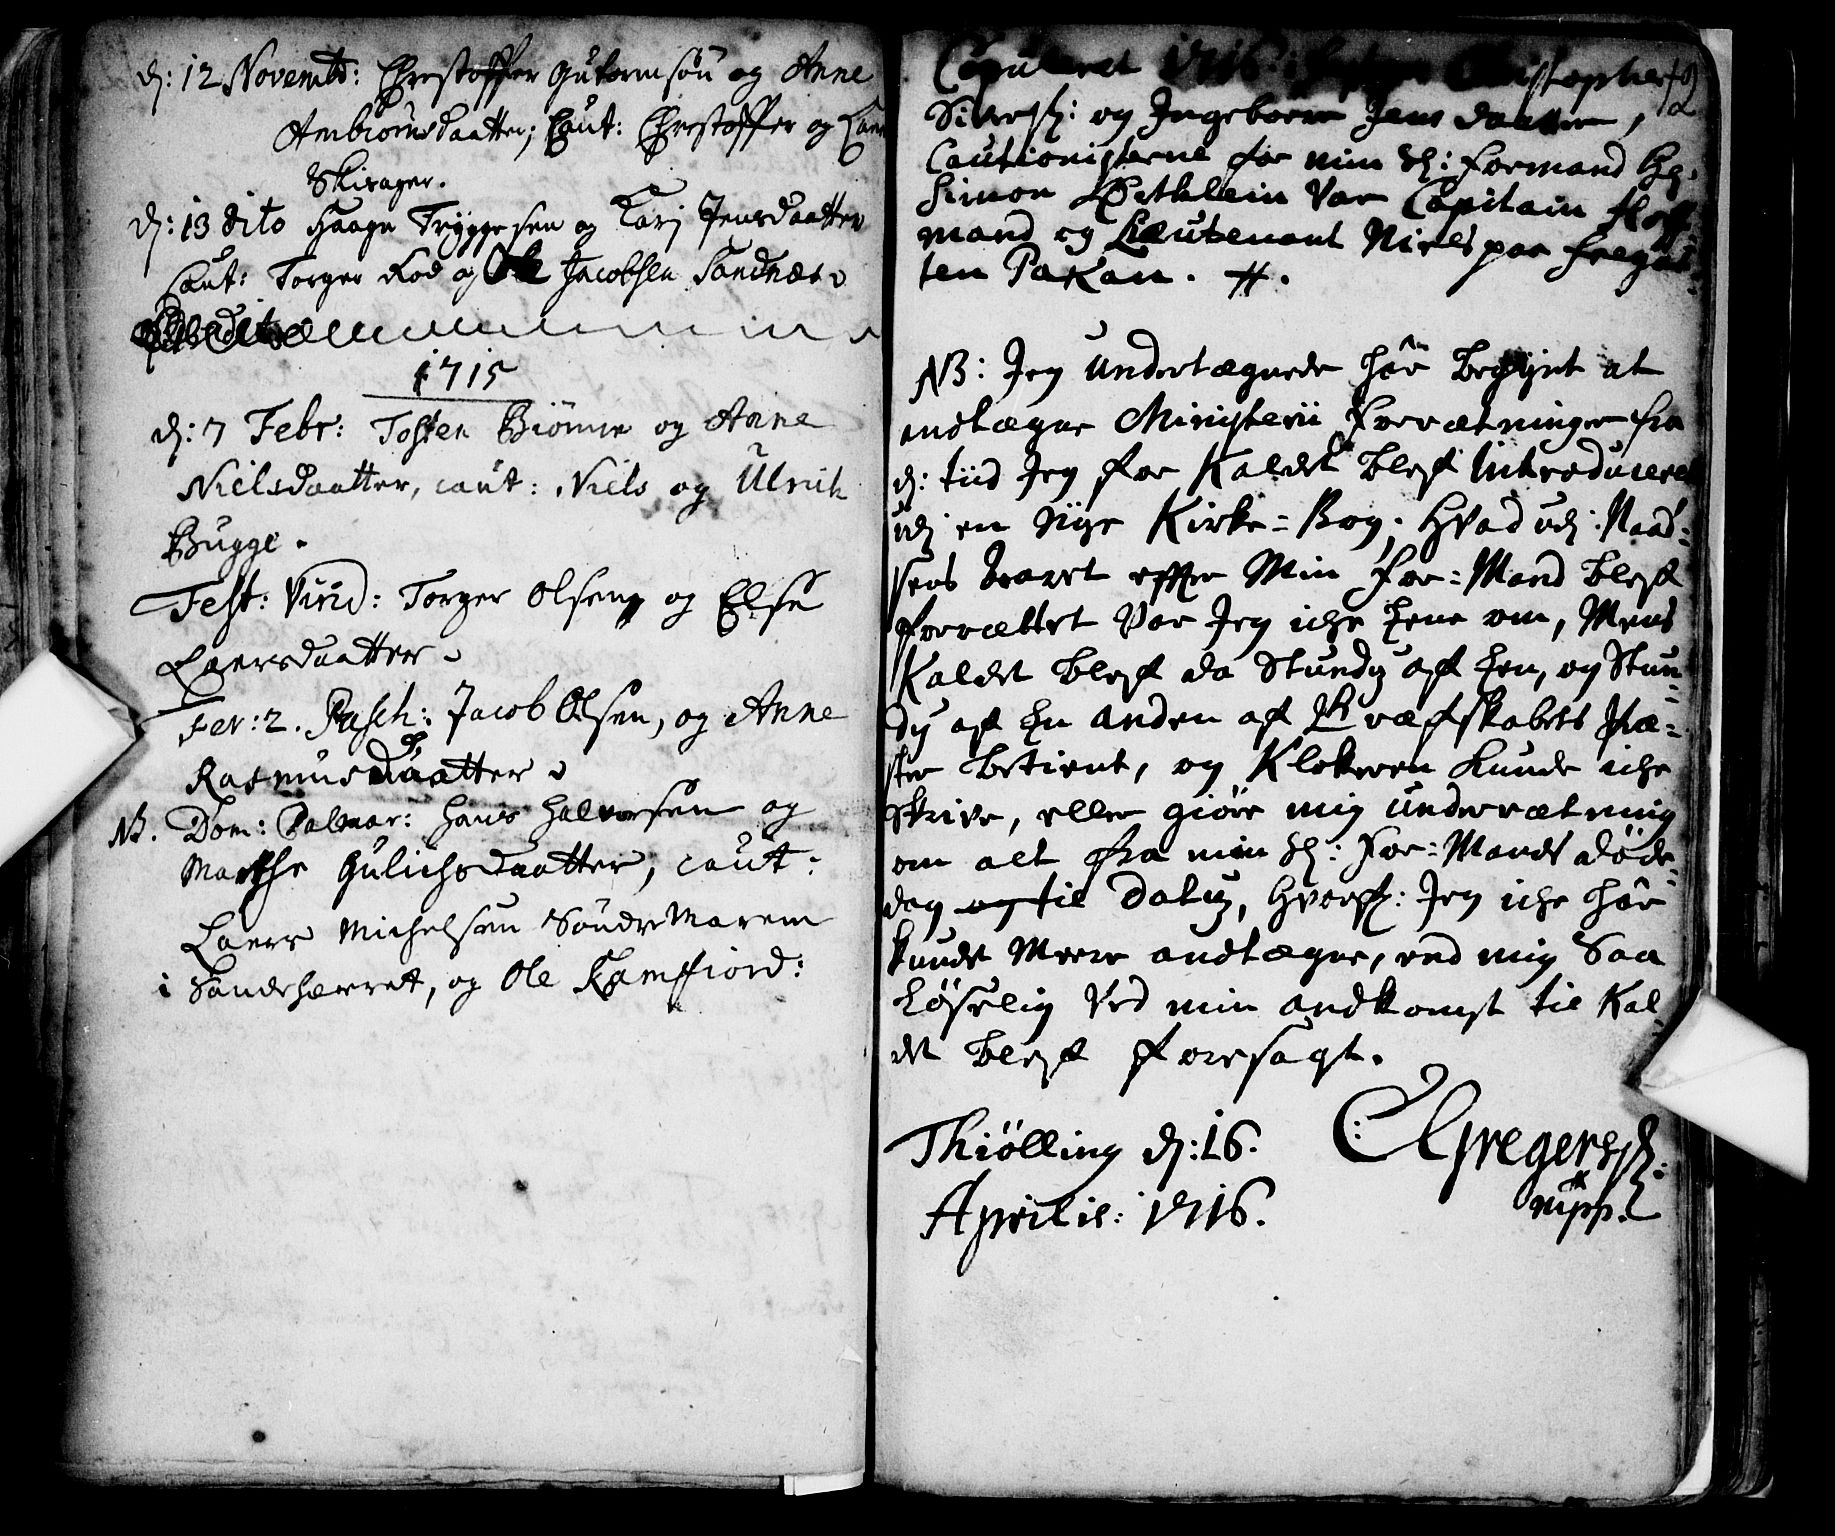 d: 12 Novembr: Christoffer Gutormsøn og Anne
Ambiørnsdaatter; Caut: Christoffer og Laers
Skisager.
d: 13 dito Haagn Tryggesen og Karj Jensdaatter
Caut: Torger Kod og Ole Jacobsen Sandnæs
1715
d: 7 Febr: Tosten Biönnn og Anne
Nielsdaatter, caut: Niels og Ulrich
Bugge.
Fest: Virid: Torger Olsen og Else
Laersdaatter
Fer: 2. Pasch: Jacob Olsen, og Anne
Rasmusdaatter
NB. Dom: Palmar: Hans Halvorsen og
Marthe Gulichsdaatter, caut:
Laers Michelsen SöndreMarem
i Sandeherret, og Ole Kamfiord:
Copuleret 1716 Christopher 92
Siversß: og Ingeborre Jens daatter,
Cautionisterne for min Sl: formand Hr.
Simon Bethlein Var Capitain Hoff
mand og Lieutenant Niels paa fregat
ten Pakan. #.
NB: Jeg undertægnede har Begÿnt at
andtægne Ministerii Forrætninger fra
d: tiid Jeg for Kaldet blef Introduceret
udj en Nÿe Kirke=Bog; Hvad udj Naad=
sens Aaret effter Min For=Mand blef
forrættet Var Jeg iche hene om, Mens
Kaldet blef da Stundj af Een, og Stun=
dj af En anden af Græfskabets Præ=
ster betient, og Klokeren kunde iche
skrive, eller giöre mig underrætning
om alt fra min Sl: For=Mands döde=
dag og til Datum, Hvorfor Jeg iche har
kundt Meere andtægne, end mig Saa
Löselig Ved min andkomst til Kal=
det blef foresagt.
Thiölling d: 16.
Aprilis: 1716.
mpp.